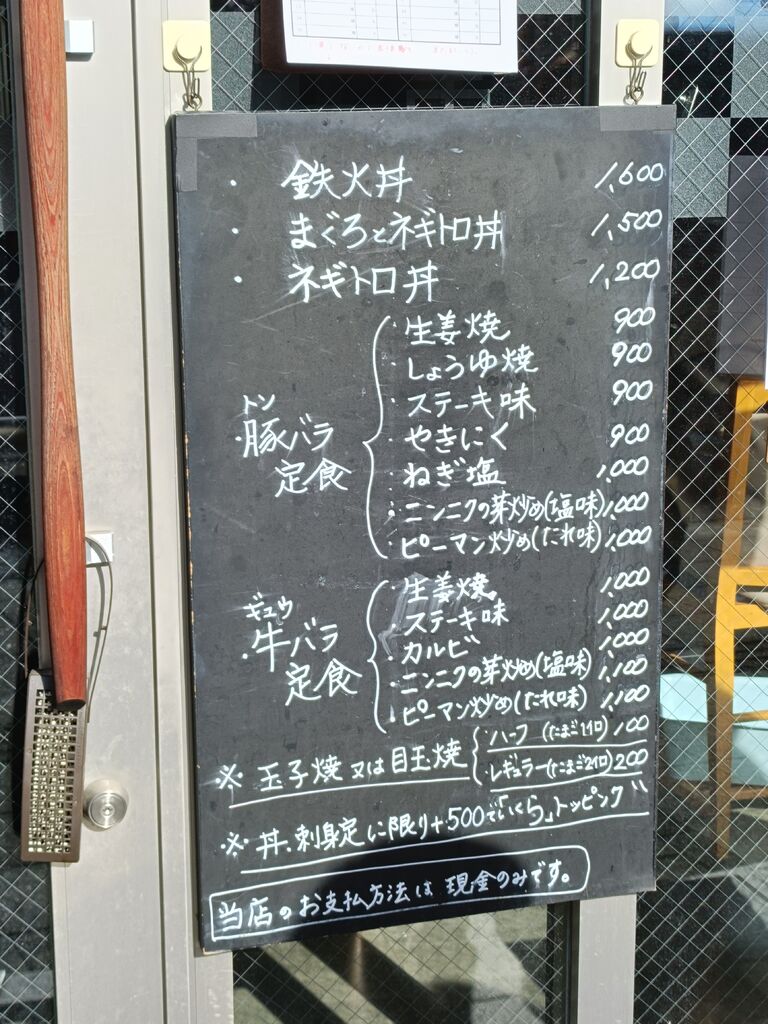 ・ 鉄火丼 1,600
・ まぐろとネギトロ丼 1,500
・ ネギトロ丼 1,200
トン
・豚バラ
定食
・生姜焼 900
・しょうゆ焼 900
・ステーキ味 900
・やきにく 900
・ねぎ塩 1,000
・ニンニクの芽炒め(塩味) 1,000
・ピーマン炒め(たれ味) 1,000
ギュウ
・牛バラ
定食
・生姜焼 1,000
・ステーキ味 1,000
・カルビ 1,000
・ニンニクの芽炒め(塩味) 1,100
・ピーマン炒め(たれ味) 1,100
※ 玉子焼又は目玉焼
・ハーフ (たまご1コ) 100
・レギュラー(たまご2コ) 200
※ 丼、刺身定に限り+500で「いくら」トッピング
当店のお支払方法は現金のみです。